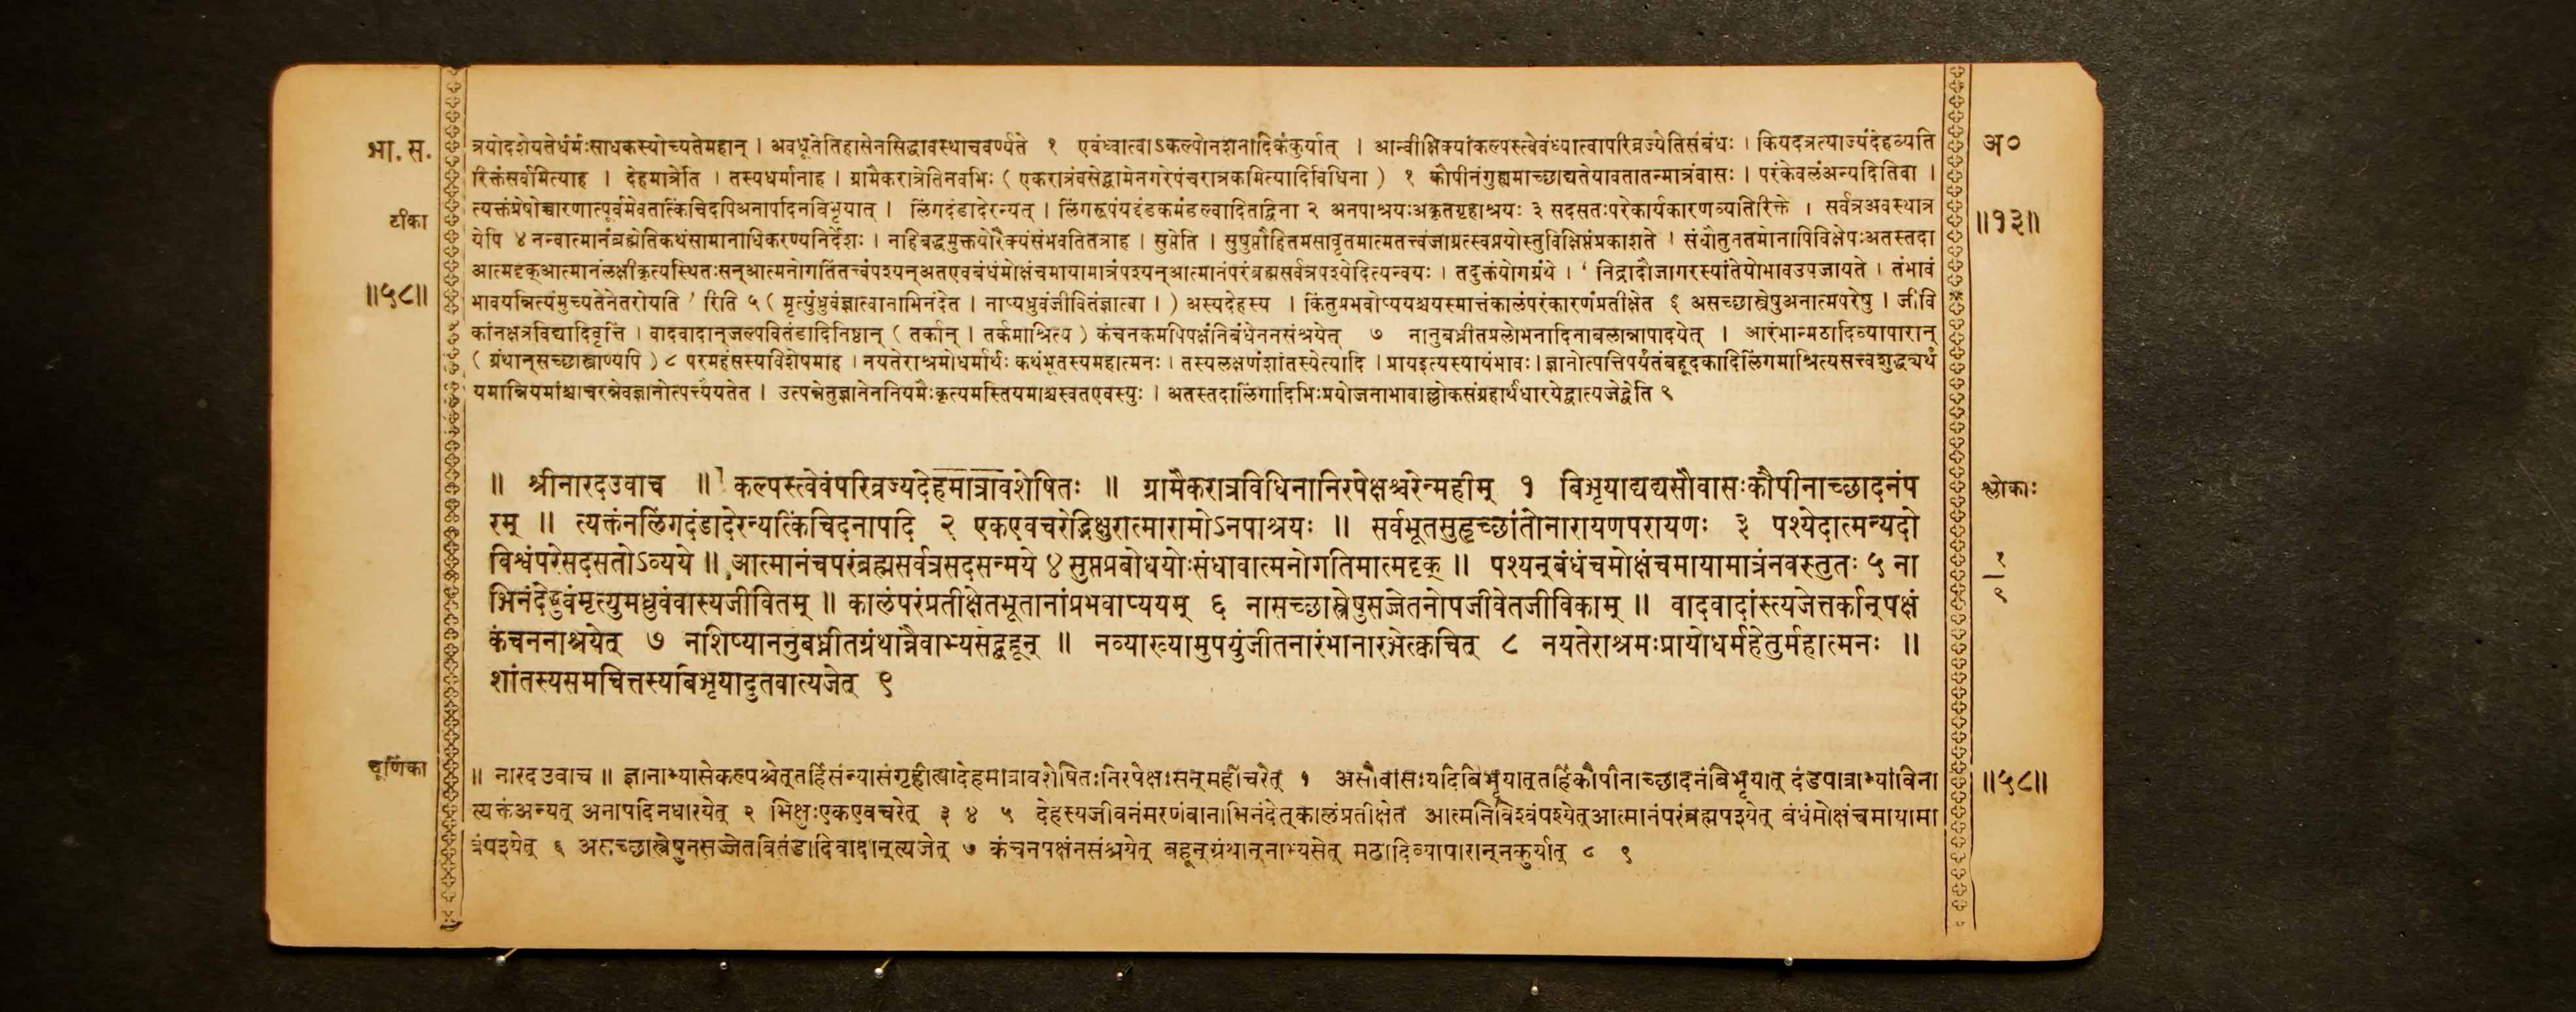 भा. स.
टीका
॥५८॥
त्रयोदशेयतेर्धर्मःसाधकस्योच्यतेमहान् । अवधूतेतिहासेनसिद्धावस्थाचवर्ण्यते १ एवंध्वात्वाऽकल्पोनशनादिकंकुर्यात् । आन्वीक्षिक्यांकल्पस्त्वेवंध्यात्वापरिव्रज्येतिसंबंधः । कियदत्रत्याज्यंदेहव्यति
रिक्तंसर्वमित्याह । देहमात्रेति । तस्यधर्मानाह । ग्रामैकरात्रेतिनवभिः ( एकरात्रंवसेद्ग्रामेनगरेपंचरात्रकमित्यादिविधिना ) १ कौपीनंगुह्यमाच्छाद्यतेयावतातन्मात्रंवासः । परंकेवलंअन्यदितिवा ।
त्यक्तंप्रेषोच्चारणात्पूर्वमेवतात्किंचिदपिअनापदिनबिभृयात् । लिंगदंडादेरन्यत् । लिंगरूपंयद्दंडकमंडल्वादितद्विना २ अनपाश्रयःअकृतगृहाश्रयः ३ सदसतःपरेकार्यकारणव्यतिरिक्ते । सर्वत्रअवस्थात्र
येपि ४ नन्वात्मानंब्रह्मेतिकथंसामानाधिकरण्यनिर्देशः । नाहिबद्धमुक्तयोरैक्यंसंभवतितत्राह । सुप्तेति । सुषुप्तौहितमसावृतमात्मतत्त्वंजाग्रत्स्वप्नयोस्तुविक्षिप्तंप्रकाशते । संधौतुनतमोनापिविक्षेपःअतस्तदा
आत्मदृक्आत्मानंलक्षीकृत्यस्थितःसन्आत्मनोगतिंतत्त्वंपश्यन्अतएवबंधंमोक्षंचमायामात्रंपश्यन्आत्मानंपरंब्रह्मसर्वत्रपश्येदित्यन्वयः । तदुक्तंयोगग्रंथे । ' निद्रादौजागरस्यांतेयोभावउपजायते । तंभावं
भावयन्नित्यंमुच्यतेनेतरोयति ' रिति ५ ( मृत्युंध्रुवंज्ञात्वानाभिनंदेत । नाप्यध्रुवंजीवितंज्ञात्वा । ) अस्यदेहस्य । किंतुप्रभवोप्ययश्चयस्मात्तंकालंपरंकारणंप्रतीक्षेत ६ असच्छास्त्रेषुअनात्मपरेषु । जीवि
कांनक्षत्रविद्यादिवृत्तिं । वादवादान्जल्पवितंडादिनिष्ठान् ( तर्कान् । तर्कमाश्रित्य ) कंचनकमपिपक्षंनिर्बंधेननसंश्रयेत् ७ नानुबध्नीतप्रलोभनादिनाबलान्नापादयेत् । आरंभान्मठादिव्यापारान्
( ग्रंथान्सच्छास्त्राण्यपि ) ८ परमहंसस्यविशेषमाह । नयतेराश्रमोधर्मार्थः कथंभूतस्यमहात्मनः । तस्यलक्षणंशांतस्येत्यादि । प्रायइत्यस्यायंभावः । ज्ञानोत्पत्तिपर्यंतंबहूदकादिलिंगमाश्रित्यसत्त्वशुद्ध्यर्थं
यमान्नियमांश्चाचरन्नेवज्ञानोत्पत्त्यैयतेत । उत्पन्नेतुज्ञानेननियमैःकृत्यमस्तियमाश्चस्वतएवस्युः । अतस्तदालिंगादिभिःप्रयोजनाभावाल्लोकसंग्रहार्थंधारयेद्वात्यजेद्वेति ९
अ०
॥१३॥
॥ श्रीनारदउवाच ॥ कल्पस्त्वेवंपरिव्रज्यदेहमात्रावशेषितः ॥ ग्रामैकरात्रविधिनानिरपेक्षश्चरेन्महीम् १ बिभृयाद्यद्यसौवासःकौपीनाच्छादनंप
रम् ॥ त्यक्तंनलिंगदंडादेरन्यत्किंचिदनापदि २ एकएवचरेद्भिक्षुरात्मारामोऽनपाश्रयः ॥ सर्वभूतसुहृच्छांतोनारायणपरायणः ३ पश्येदात्मन्यदो
विश्वंपरेसदसतोऽव्यये ॥ आत्मानंचपरंब्रह्मसर्वत्रसदसन्मये ४ सुप्तप्रबोधयोःसंधावात्मनोगतिमात्मदृक् ॥ पश्यन्बंधंचमोक्षंचमायामात्रंनवस्तुतः ५ ना
भिनंदेद्ध्रुवंमृत्युमध्रुवंवास्यजीवितम् ॥ कालंपरंप्रतीक्षेतभूतानांप्रभवाप्ययम् ६ नासच्छास्त्रेषुसज्जेतनोपजीवेतजीविकाम् ॥ वादवादांस्त्यजेत्तर्कान्पक्षं
कंचननाश्रयेत् ७ नशिष्याननुबध्नीतग्रंथान्नैवाभ्यसेद्बहून् ॥ नव्याख्यामुपयुंजीतनारंभानारभेत्क्वचित् ८ नयतेराश्रमःप्रायोधर्महेतुर्महात्मनः ॥
शांतस्यसमचित्तस्यबिभृयादुतवात्यजेत् ९
श्लोकाः
१
९
चूर्णिका
॥ नारदउवाच ॥ ज्ञानाभ्यासेकल्पश्चेत्तर्हिसंन्यासंगृहीत्वादेहमात्रावशेषितःनिरपेक्षःसन्महींचरेत् १ असौवासःयदिबिभृयात्तर्हिकौपीनाच्छादनंबिभृयात् दंडपात्राभ्यांविना
त्यक्तंअन्यत् अनापदिनधारयेत् २ भिक्षुःएकएवचरेत् ३ ४ ५ देहस्यजीवनंमरणंवानाभिनंदेत्कालंप्रतीक्षेत आत्मनिविश्वंपश्येत्आत्मानंपरंब्रह्मपश्येत् बंधंमोक्षंचमायामा
त्रंपश्येत् ६ असच्छास्त्रेषुनसज्जेतवितंडादिवादान्त्यजेत् ७ कंचनपक्षंनसंश्रयेत् बहून्ग्रंथान्नाभ्यसेत् मठादिव्यापारान्नकुर्यात् ८ ९
॥५८॥